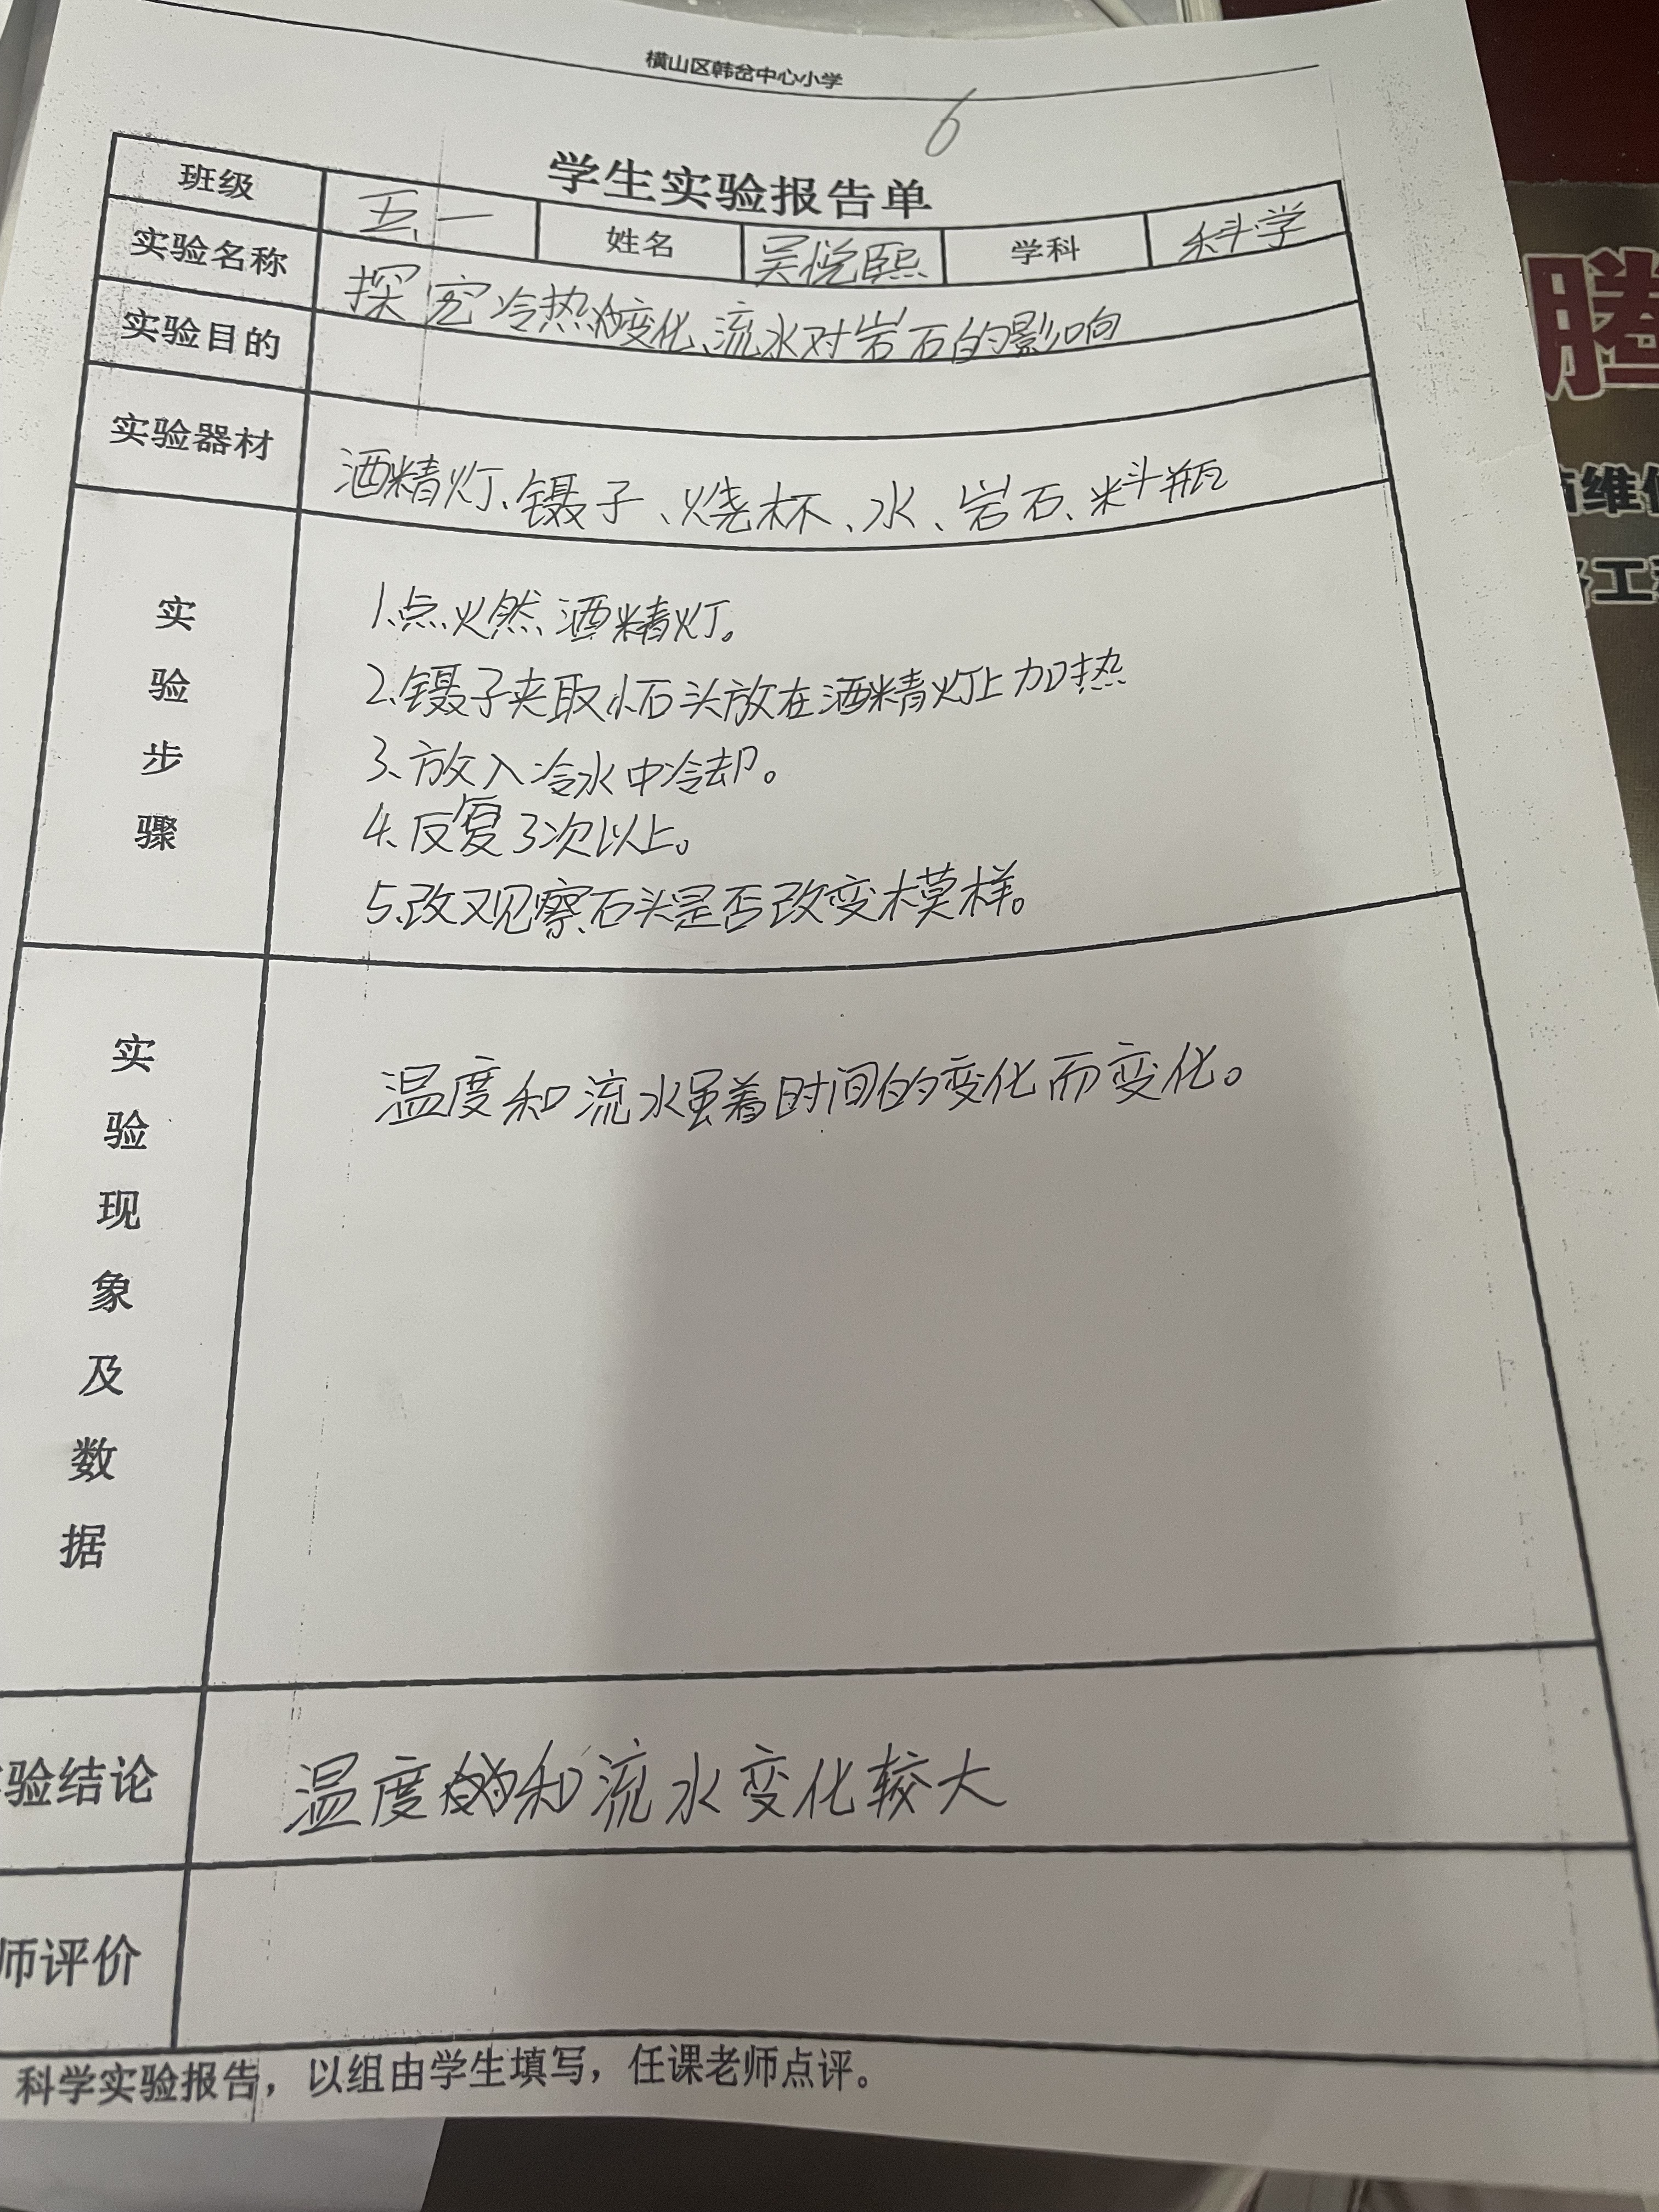 横山区韩岔中心小学
6
学生实验报告单
班级 五、一 姓名 吴悦熙 学科 科学
实验名称 探究冷热变化、流水对岩石的影响
实验目的
实验器材 酒精灯、镊子、烧杯、水、岩石、料瓶
实验步骤
1.点燃酒精灯。
2.镊子夹取小石头放在酒精灯上加热
3.放入冷水中冷却。
4.反复3次以上。
5.改观察石头是否改变模样。
实验现象及数据
温度和流水虽着时间的变化而变化。
验结论 温度和流水变化较大
师评价
科学实验报告，以组由学生填写，任课老师点评。
腾
维
工